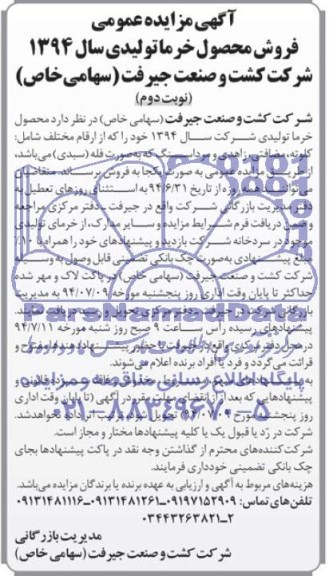 آگهی مزایده عمومی
فروش محصول خرما تولیدی سال ۱۳۹۴
شرکت کشت و صنعت جیرفت (سهامی خاص)
(نوبت دوم)
شرکت کشت و صنعت جیرفت (سهامی خاص) در نظر دارد محصول
خرما تولیدی شرکت سال ۱۳۹۴ خود را که از ارقام مختلف شامل:
کلوته، مضافتی، زاهدی و مردارسنگ که به صورت فله (سبدی) می‌باشد،
از طریق مزایده عمومی به صورت یکجا به فروش برساند. متقاضیان
می‌توانند همه روز از تاریخ ۹۴/۶/۳۱ به استثنای روزهای تعطیل به
دفتر مدیریت بازرگانی شرکت واقع در جیرفت و دفتر مرکزی مراجعه
و ضمن دریافت فرم شرایط مزایده و سایر مدارک، از خرمای تولیدی
موجود در سردخانه شرکت بازدید و پیشنهادهای خود را همراه با
مبلغ پیشنهادی به صورت چک بانکی تضمینی قابل وصول به وسیله
شرکت کشت و صنعت جیرفت (سهامی خاص) در پاکت لاک و مهر شده
حداکثر تا پایان وقت اداری روز پنجشنبه مورخه ۹۴/۰۷/۰۹ به مدیریت
بازرگانی دفتر مرکزی
پیشنهادهای رسیده راس ساعت ۹ صبح روز شنبه مورخه ۹۴/۷/۱۱
در محل دفتر مرکزی واقع در جیرفت با حضور پیشنهاد دهنده‌ها مفتوح و
قرائت می‌گردد و فرد یا افراد برنده اعلام می‌شوند.
پیشنهادهایی که بعد از انقضای مهلت مقرر در آگهی (تا پایان وقت اداری
روز پنجشنبه مورخ
شرکت در رد یا قبول یک یا کلیه پیشنهادها مختار و مجاز است.
شرکت‌کننده‌های محترم از گذاشتن وجه نقد در پاکت پیشنهادها بجای
چک بانکی تضمینی خودداری فرمایند.
هزینه‌های مربوط به آگهی و ارزیابی به عهده برنده یا برندگان مزایده می‌باشد.
تلفن‌های تماس: ۰۹۱۹۷۱۵۲۹۰۹-۰۹۱۳۱۴۸۱۲۶۱-۰۹۱۳۱۴۸۱۱۱۶
۰۳۴۴۳۲۶۳۸۲۱-۲
مدیریت بازرگانی
شرکت کشت و صنعت جیرفت (سهامی خاص)
پایگاه اطلاع رسانی مناقصه و مزایده
۰۲۱-۸۸۳۴۹۶۷۰-۵